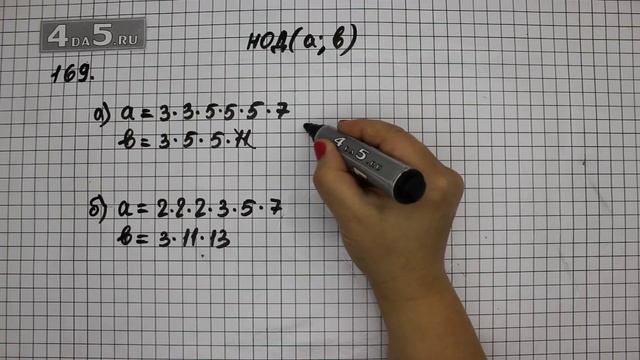 4DA5.RU
НОД(а; в)
169.
а) а = 3·3·5·5·5·7
в = 3·5·5·11
б) а = 2·2·2·3·5·7
в = 3·11·13
4DA5.RU